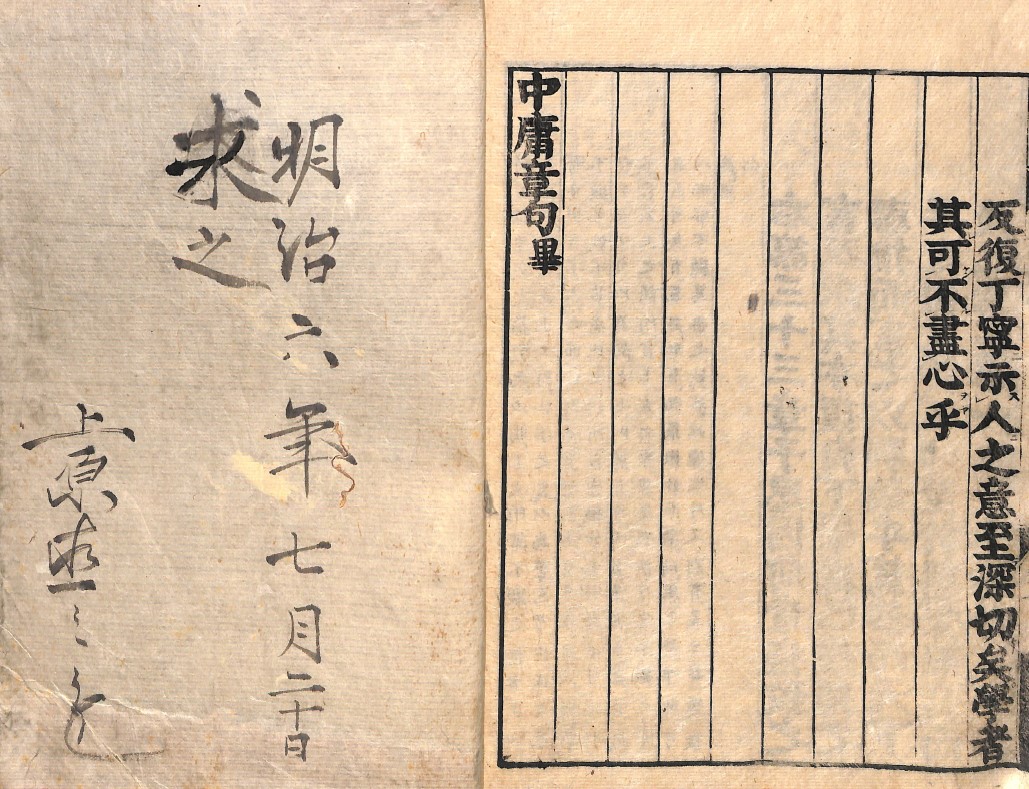 反復丁寧示人之意至深切矣學者
其可不盡心乎
中庸章句畢
明治六年七月二十日
求之
上原